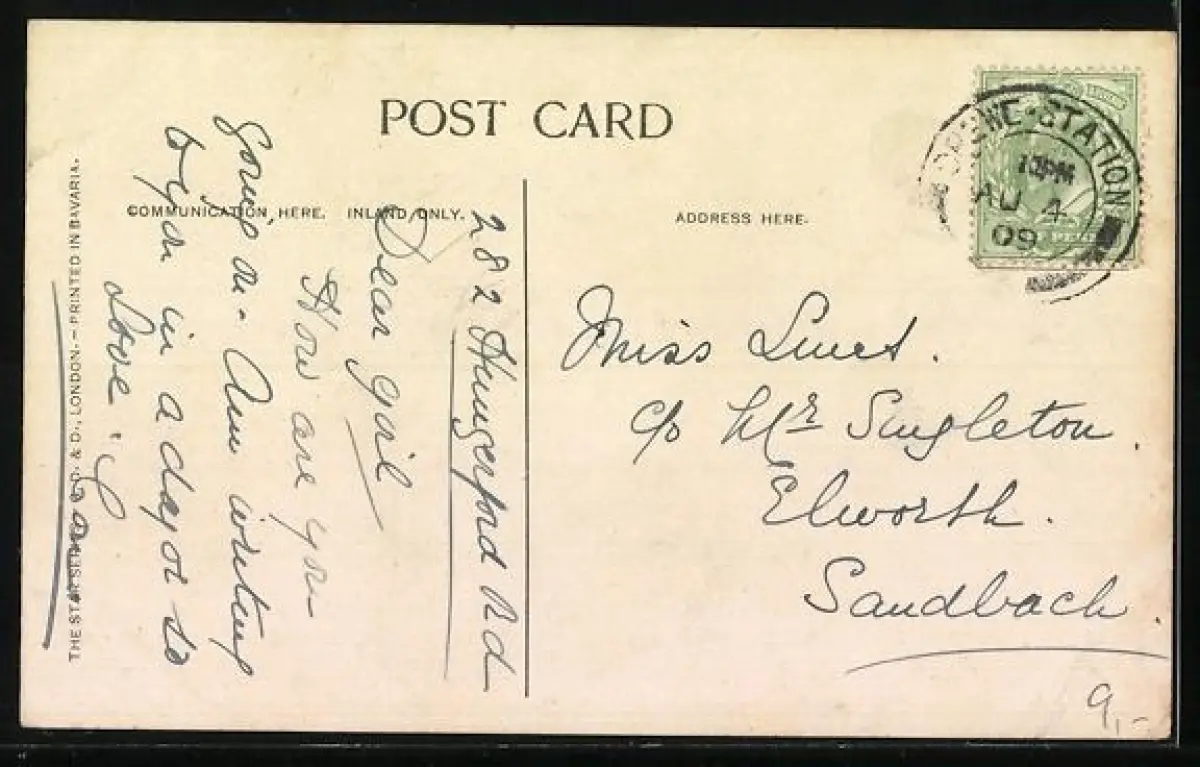 POST CARD
COMMUNICATION HERE. INLAND ONLY.
ADDRESS HERE.
THE STAR SERIES G.D. & D., LONDON. – PRINTED IN BAVARIA.
CREWE·STATION
12PM
AU 4
09
282 Hungerford Rd
Dear Gail
How are you
going on. Am writing
in a day or so
Love
Miss
c/o Mr Singleton.
Elworth.
Sandbach.
9,-